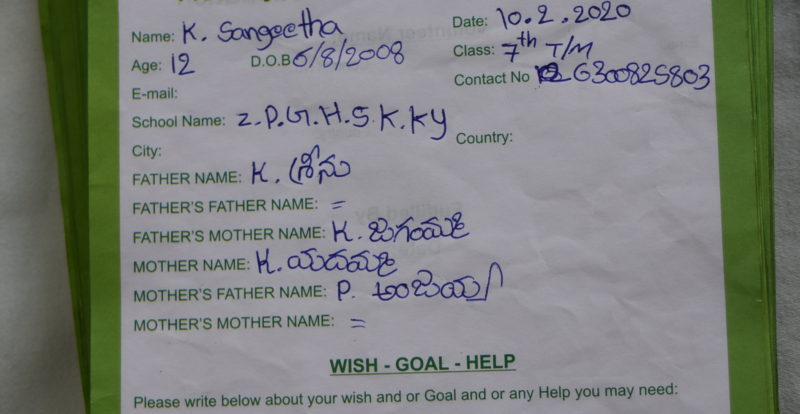 Name: K. Sangeetha
Date: 10.2.2020
Age: 12 D.O.B 6/8/2008
Class: 7th T/M
Contact No 6300825803
E-mail:
School Name: Z.P.G.H.S K.KY
Country:
City:
FATHER NAME: K. శ్రీను
FATHER'S FATHER NAME: =
FATHER'S MOTHER NAME: K. జగమ్మ
MOTHER NAME: K. యాదమ్మ
MOTHER'S FATHER NAME: P. అంజయ్య
MOTHER'S MOTHER NAME: =
WISH - GOAL - HELP
Please write below about your wish and or Goal and or any Help you may need: